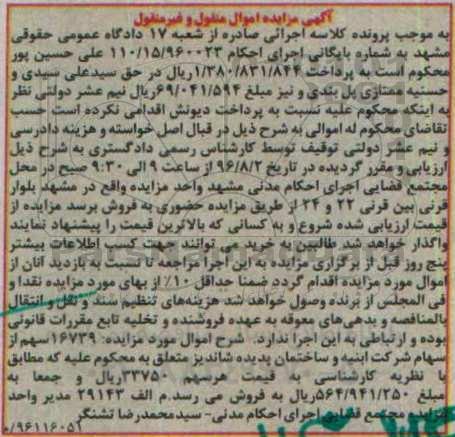 آگهی مزایده اموال منقول و غیرمنقول
به موجب پرونده کلاسه اجرائی صادره از شعبه ۱۷ دادگاه عمومی حقوقی
مشهد به شماره بایگانی اجرای احکام ۱۱۰/۱۵/۹۶۰۰۲۳ علی حسین پور
محکوم است به پرداخت ۱/۳۸۰/۸۳۱/۸۴۴ریال در حق سیدعلی سیدی و
حسنیه ممتازی پل بندی و نیز مبلغ ۶۹/۰۴۱/۵۹۴ریال نیم عشر دولتی نظر
به اینکه محکوم علیه نسبت به پرداخت دیونش اقدامی نکرده است حسب
تقاضای محکوم له اموالی به شرح ذیل در قبال اصل خواسته و هزینه دادرسی
و نیم عشر دولتی توقیف توسط کارشناس رسمی دادگستری به شرح ذیل
ارزیابی و مقرر گردیده در تاریخ ۹۶/۸/۲ از ساعت ۹ الی ۹:۳۰ صبح در محل
مجتمع قضایی اجرای احکام مدنی مشهد واحد مزایده واقع در مشهد بلوار
قرنی بین قرنی ۲۲ و ۲۴ از طریق مزایده حضوری به فروش برسد مزایده از
قیمت ارزیابی شده شروع و به کسانی که بالاترین قیمت را پیشنهاد نمایند
واگذار خواهد شد طالبین به خرید می توانند جهت کسب اطلاعات بیشتر
پنج روز قبل از برگزاری مزایده به این اجرا مراجعه تا نسبت به بازدید آنان از
اموال مورد مزایده اقدام گردد ضمنا حداقل ۱۰٪ از بهای مورد مزایده نقدا و
فی المجلس از برنده وصول خواهد شد هزینه‌های تنظیم سند و نقل و انتقال
بالمناصفه و بدهی‌های معوقه به عهده فروشنده و تخلیه تابع مقررات قانونی
بوده و ارتباطی به این اجرا ندارد. شرح اموال مورد مزایده: ۱۶۷۳۹سهم از
سهام شرکت ابنیه و ساختمان پدیده شاندیز متعلق به محکوم علیه که مطابق
با نظریه کارشناسی به قیمت هرسهم ۳۳۷۵۰ریال و جمعا به
مبلغ ۵۶۴/۹۴۱/۲۵۰ریال به فروش می رسد.م الف ۲۹۱۴۳ مدیر واحد
مزایده مجتمع قضایی اجرای احکام مدنی- سیدمحمدرضا تشنگر
/۹۶۱۱۶۰۵۱